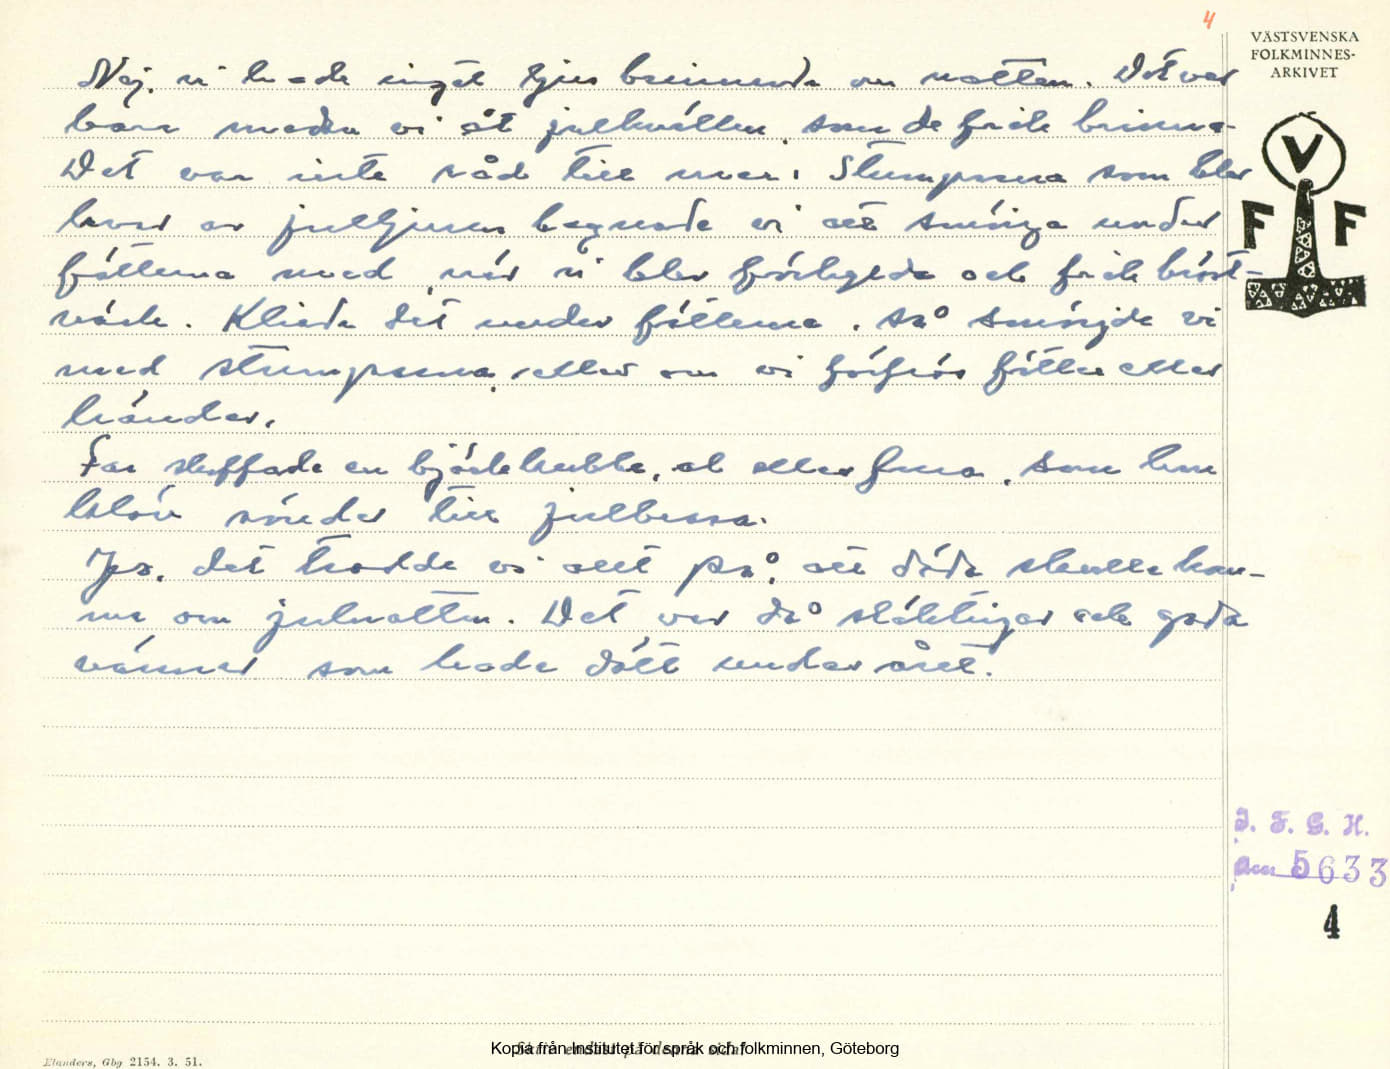 4
VÄSTSVENSKA
FOLKMINNES-
ARKIVET
V
F F
Nej, vi hade inget ljus brinnande om natten. Det var
bara medan vi åt julkvällen, som de fick brinna.
Det var inte råd till mer. Stumparna som blev
kvar av julljusen begnade vi att smörja under
fötterna med, när vi blev förkylda och fick bröst-
värk. Kliade det under fötterna, så smörjde vi
med stumparna, eller om vi förfrös fötter eller
händer.
Far skaffade en björkkubbe, al eller furu, som han
klöv sönder till julbrasa.
Jo, det trodde vi allt på, att döda skulle kom-
ma om julnatten. Det var då släktingar och goda
vänner som hade dött under året.
I. F. G. H.
5633
4
Kopia från Institutet för språk och folkminnen, Göteborg
Elanders, Gbg 2154. 3. 51.